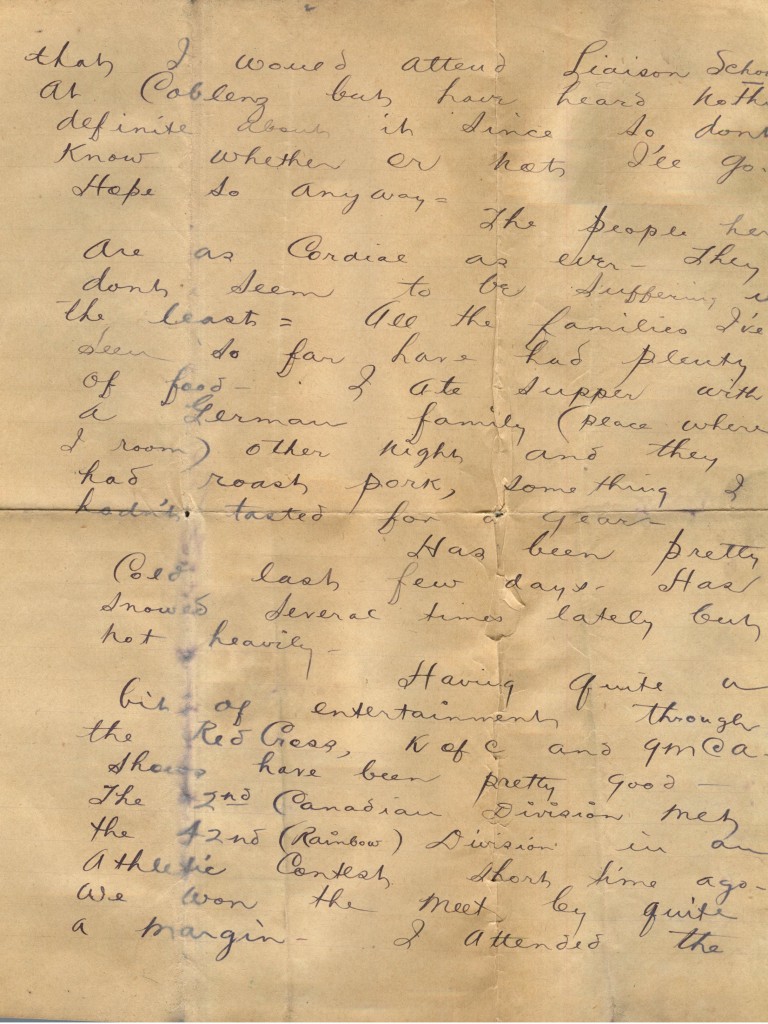 that I would attend Liaison Schoo
At Coblenz but have heard noth
definite about it since so dont
Know whether or not I'll go.
Hope so anyway =
The people her
are as Cordial as ever - They
dont seem to be suffering
the least = All the families I've
seen so far have had plenty
of food - I ate supper with
a German family (place where
I room) other night and they
had roast pork, something I
hadn't tasted for a year -
Has been pretty
Cold last few days - Has
snowed several times lately but
not heavily -
Having quite a
bit of entertainment through
the Red Cross, K of C and YMCA.
Shows have been pretty good -
The 2nd Canadian Division met
the 42nd (Rainbow) Division in an
Athletic Contest short time ago -
We won the meet by quite
a margin - I attended the